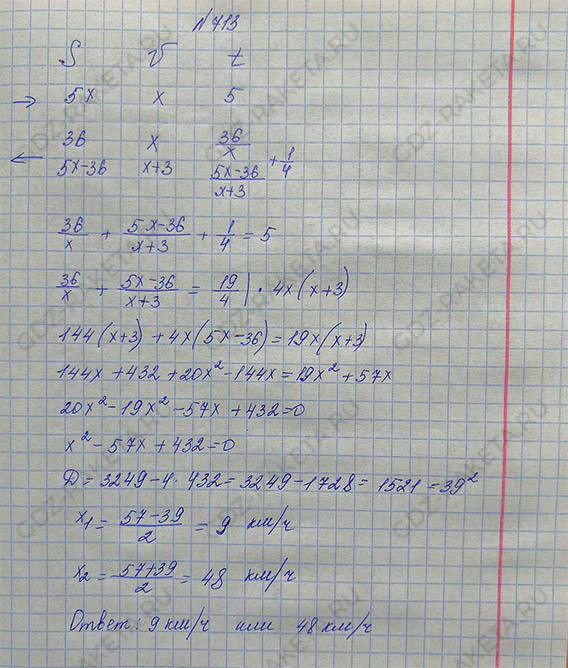 №713
S V t
→ 5x x 5
← 36 x 36/x
5x-36 x+3 (5x-36)/(x+3) + 1/4
36/x + (5x-36)/(x+3) + 1/4 = 5
36/x + (5x-36)/(x+3) = 19/4 | · 4x(x+3)
144(x+3) + 4x(5x-36) = 19x(x+3)
144x + 432 + 20x² - 144x = 19x² + 57x
20x² - 19x² - 57x + 432 = 0
x² - 57x + 432 = 0
Д = 3249 - 4 · 432 = 3249 - 1728 = 1521 = 39²
x₁ = (57-39)/2 = 9 км/ч
x₂ = (57+39)/2 = 48 км/ч
Ответ: 9 км/ч или 48 км/ч
GDZ-RAKETA.RU